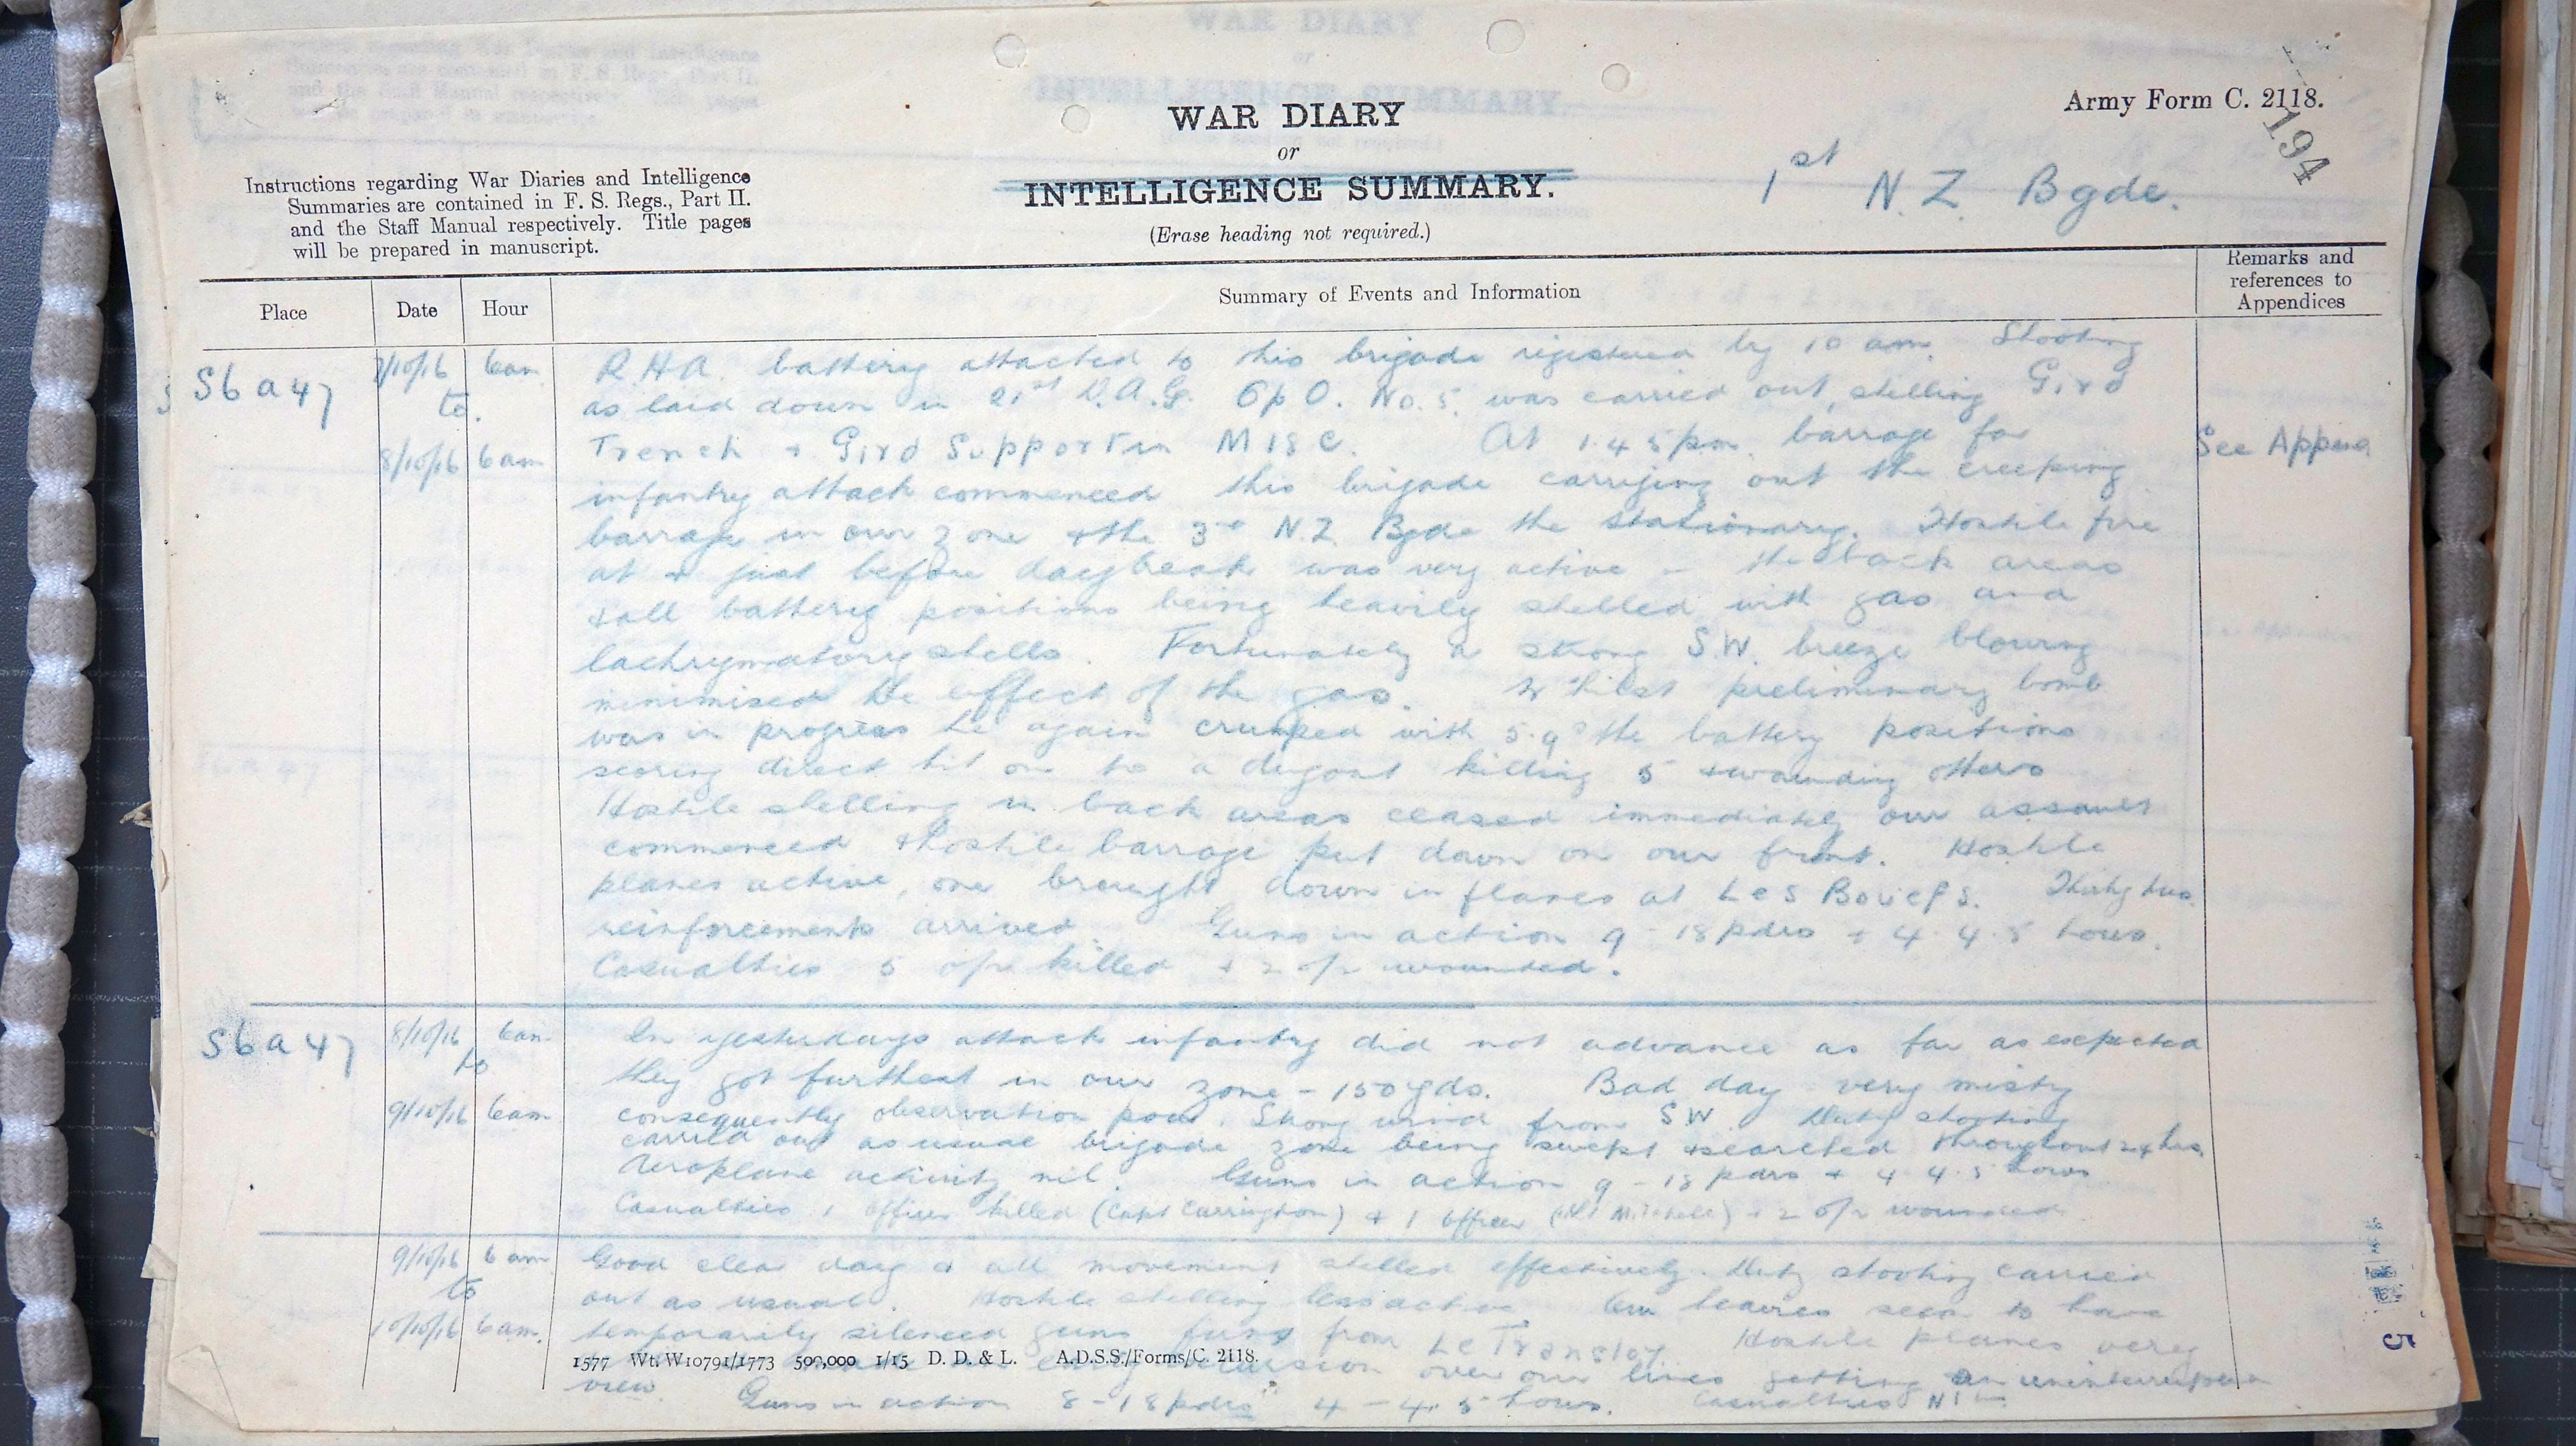 WAR DIARY
or
INTELLIGENCE SUMMARY.
(Erase heading not required.)
Army Form C. 2118.
194
1st N.Z. Bgde.
Instructions regarding War Diaries and Intelligence
Summaries are contained in F. S. Regs., Part II.
and the Staff Manual respectively. Title pages
will be prepared in manuscript.
Place Date Hour Summary of Events and Information Remarks and references to Appendices
S6a47 7/10/16 6am R.H.A. battery attached to this brigade registered by 10 am. Shooting
to. as laid down in 21st D.A.G. Op O. No. 5. was carried out, shelling Gird
8/10/16 6am Trench + Gird Support in M18c. At 1.45pm. barrage for See Appen
infantry attack commenced this brigade carrying out the creeping
barrage in our zone + the 3rd N.Z. Bgde the stationary. Hostile fire
at + just before daybreak was very active - the back areas
+ all battery positions being heavily shelled with gas and
lachrymatory shells. Fortunately a strong S.W. breeze blowing
minimised the effect of the gas. Whilst preliminary bomb
was in progress he again crumped with 5.9s the battery positions
scoring direct hit on to a dugout killing 5 + wounding others
Hostile shelling in back areas ceased immediately our assault
commenced + hostile barrage put down on our front. Hostile
planes active, one brought down in flames at Les Boeufs. Thirty two
reinforcements arrived Guns in action 9 - 18pdrs + 4 4.5 hows.
Casualties 5 o/r killed + 2 o/r wounded.
S6a47 8/10/16 6am In yesterdays attack infantry did not advance as far as expected
to they got furthest in our zone - 150yds. Bad day very misty
9/10/16 6am consequently observation poor. Strong wind from SW. Duty shooting
carried out as usual brigade zone being swept + searched throughout 24 hrs.
Aeroplane activity nil. Guns in action 9 - 18 pdrs + 4 4.5 hows
Casualties 1 officer killed (Capt Carrington) + 1 officer (Mitchell) + 2 o/r wounded
9/10/16 6 am Good clear day + all movement shelled effectively. Duty shooting carried
to out as usual. Hostile shelling less active Our heavies seem to have
10/10/16 6am. temporarily silenced guns firing from Le Transloy. Hostile planes very
over our lines getting an uninterrupted
view. Guns in action 8-18pdrs 4 - 4.5 hows. Casualties Nil
1577 Wt. W10791/1773 500,000 1/15 D. D. & L. A.D.S.S./Forms/C. 2118.
5